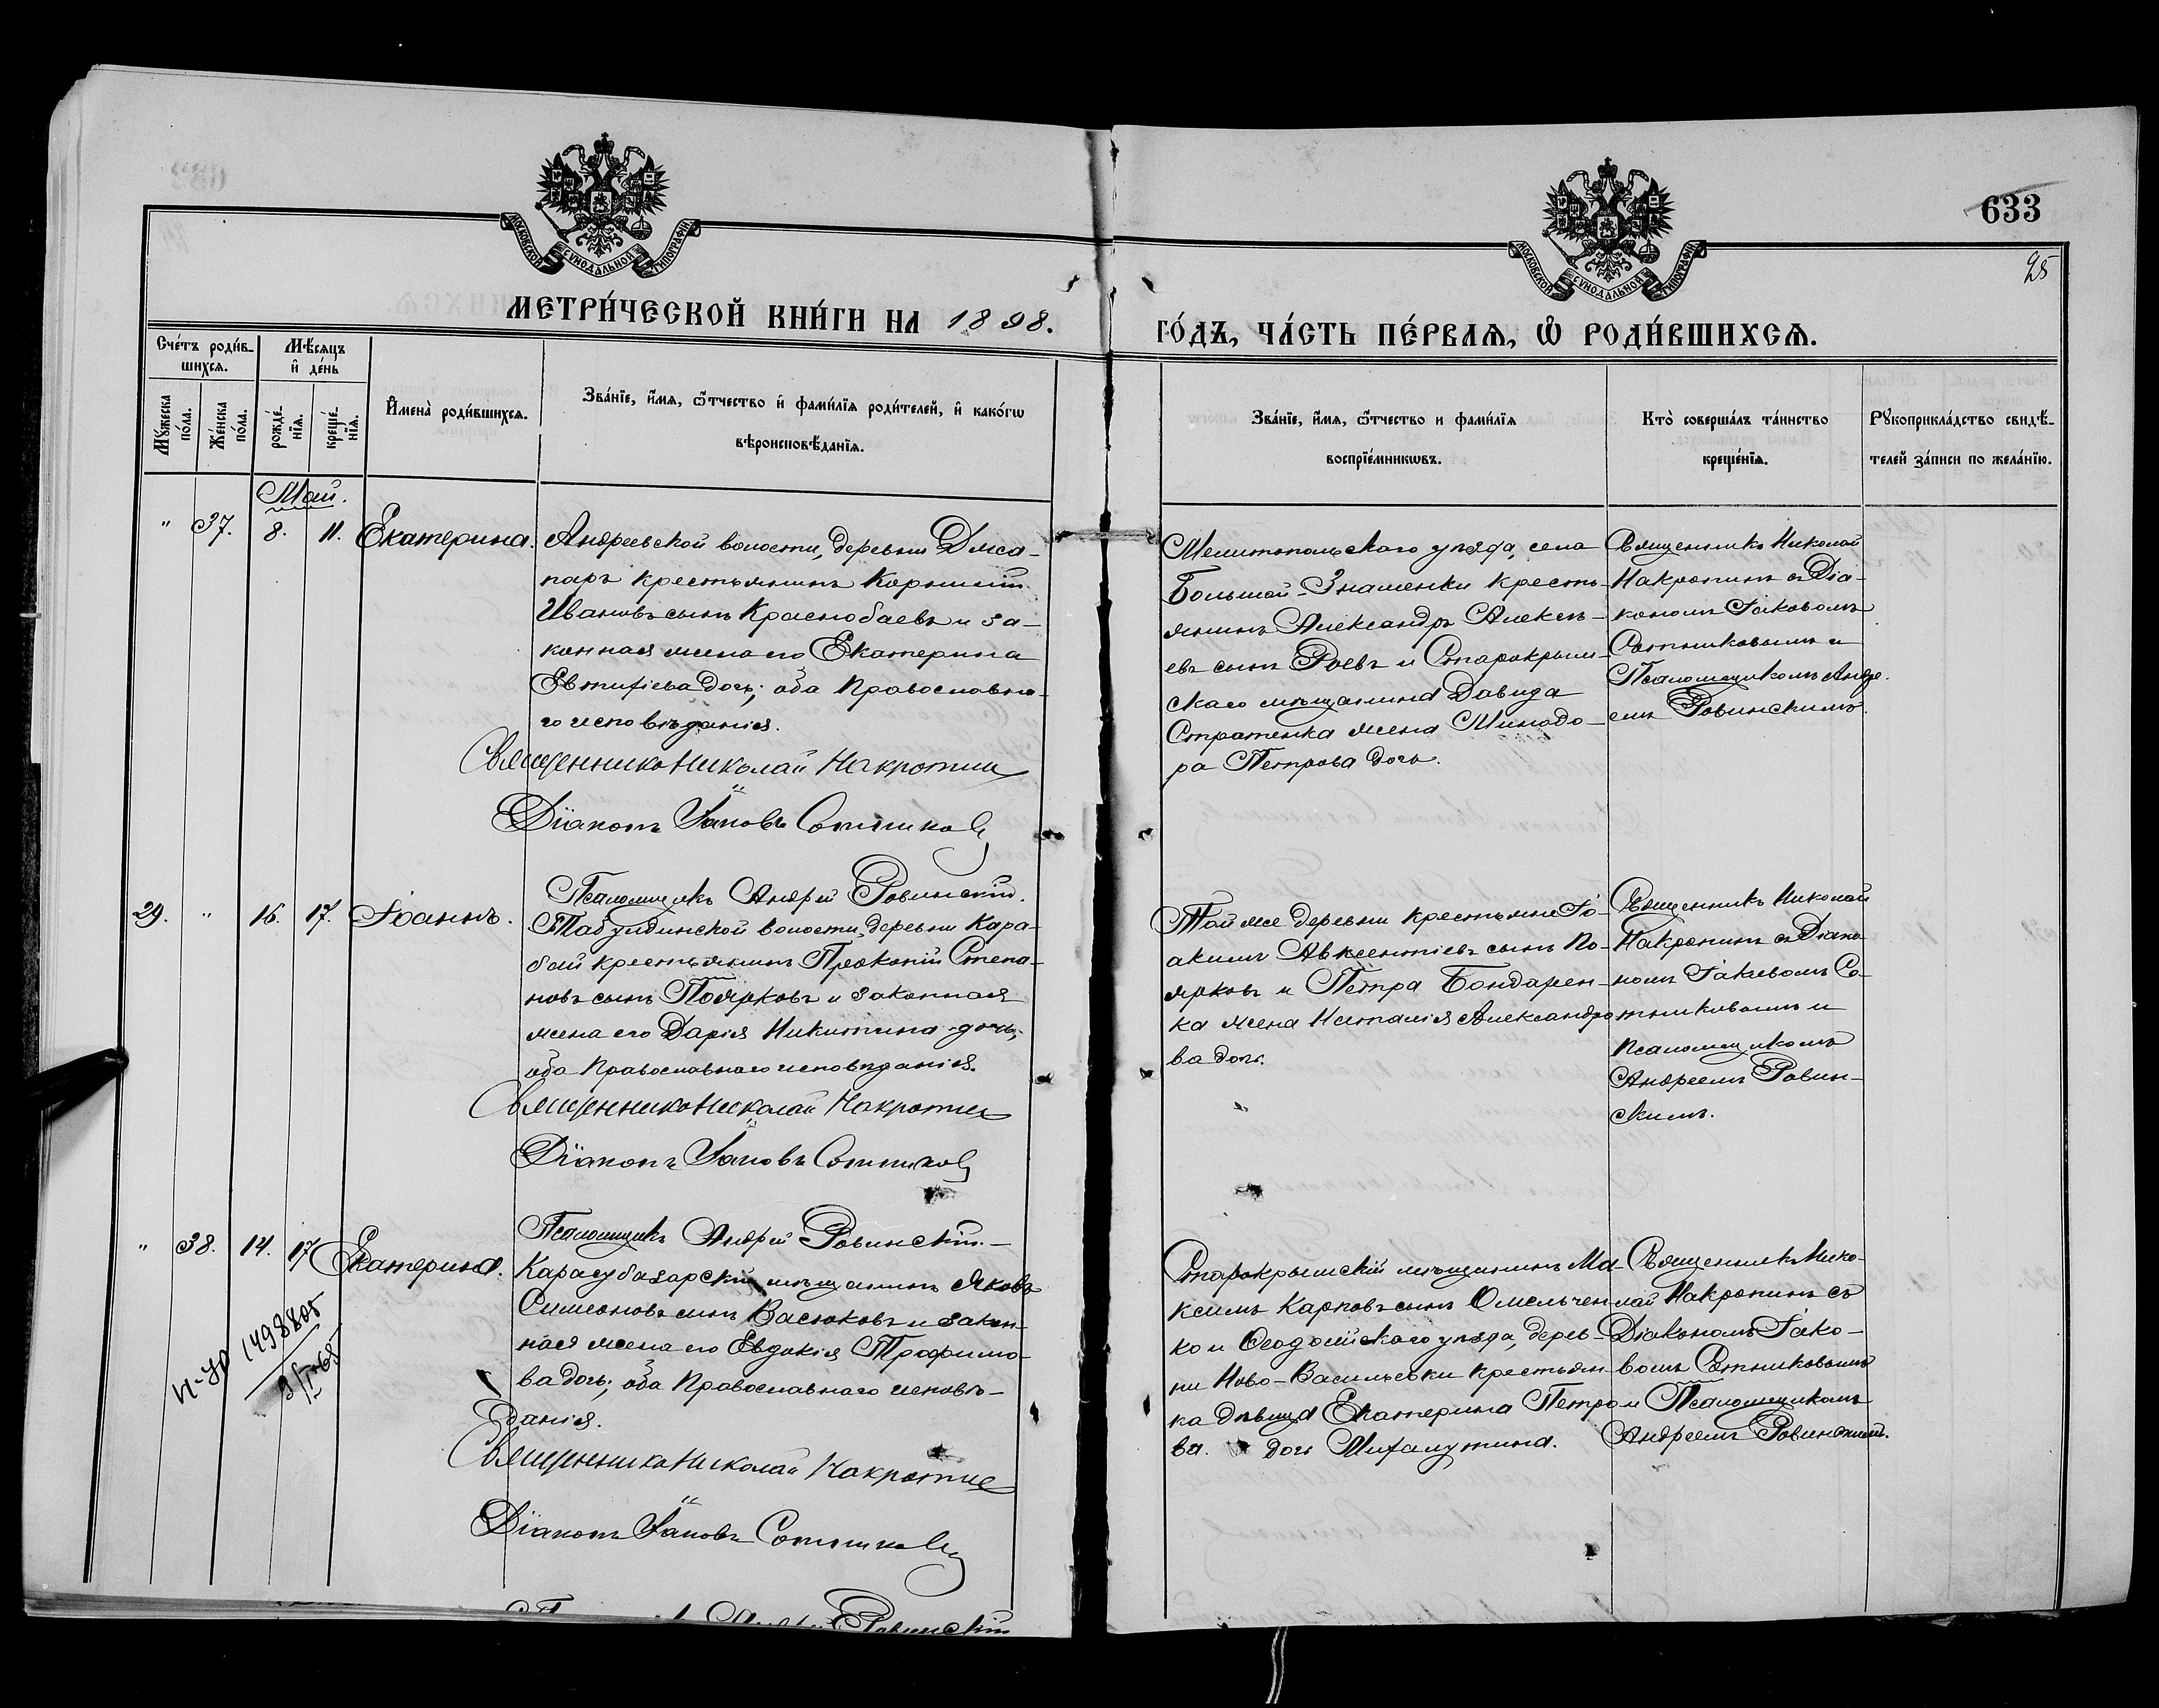 633
25
МОСКОВСКОЙ СѴНОДАЛЬНОЙ ТИПОГРАФІИ
МОСКОВСКОЙ СѴНОДАЛЬНОЙ ТИПОГРАФІИ
МЕТРИ́ЧЕСКОЙ КНИ́ГИ НА 1898.
ГО́ДЪ, ЧА́СТЬ ПЕ́РВАѦ, Ѡ҆ РОДИ́ВШИХСѦ.
Сче́тъ роди́в-
шихсѧ.
Мѣ́сѧцъ
и҆ де́нь
Мꙋ́жеска
по́ла.
Же́нска
по́ла.
рожде́-
нїѧ.
креще́-
нїѧ.
И҆мена̀ роди́вшихсѧ.
Зва́нїе, и҆́мѧ, ѻ҆́тчество и҆ фами́лїѧ роди́телей, и҆ како́гѡ
вѣроисповѣ́данїѧ.
Зва́нїе, и҆́мѧ, ѻ҆́тчество и фами́лїѧ
воспрїе́мникѡвъ.
Кто̀ соверша́лъ та́инство
креще́нїѧ.
Рꙋкоприкла́дство свидѣ́-
телей за́писи по жела́нїю.
Май.
" 37. 8. 11. Екатерина.
Андреевской волости, деревни Джа-
паръ крестьянинъ Корнилій
Ивановъ сынъ Краснобаевъ и за-
конная жена его Екатерина
Евтихіева дочь; оба Православна-
го исповѣданія.
Священникъ Николай Накропин
Діаконъ Іаковъ Сотников
Псаломщикъ Андрей Ровинскій.
Мелитопольскаго уѣзда, села
Большой-Знаменки кресть-
янинъ Александръ Алексѣ-
евъ сынъ Роевъ и Старокрым-
скаго мѣщанина Давида
Стратенка жена Минодо-
ра Петрова дочь.
Священникъ Николай
Накропинъ съ Діа-
кономъ Іаковомъ
Сотниковымъ и
Псаломщикомъ Андре-
емъ Ровинскимъ.
29. " 16. 17. Іоаннъ.
Табулдинской волости, деревни Кара-
бай крестьянинъ Прокопій Степа-
новъ сынъ Поярковъ и законная
жена его Дарія Никитина дочь;
оба Православнаго исповѣданія.
Священникъ Николай Накропин
Діаконъ Іаковъ Сотников
Псаломщикъ Андрей Ровинскій.
Той же деревни крестьяне Іо-
акимъ Авксентіевъ сынъ По-
ярковъ и Петра Бондарен-
ка жена Наталія Александро-
ва дочь.
Священникъ Николай
Накропинъ съ Діако-
номъ Іаковомъ Со-
тниковымъ и
Псаломщикомъ
Андреемъ Ровин-
скимъ.
" 38. 14. 17 Екатерина.
Карасубазарскій мѣщанинъ Яковъ
Симеоновъ сынъ Васюковъ и закон-
ная жена его Евдокія Трофимо-
ва дочь; оба Православнаго исповѣ-
данія.
Священникъ Николай Накропин
Діаконъ Іаковъ Сотников
Андрей Ровинскій
Старокрымскій мѣщанинъ Ма-
ксимъ Карповъ сынъ Омельчен-
ко и Ѳеодосійскаго уѣзда, дерев-
ни Ново-Васильевки крестьян-
ка дѣвица Екатерина Петро-
ва дочь Михалутина.
Священникъ Нико-
лай Накропинъ съ
Діакономъ Іако-
вомъ Сотниковымъ
и Псаломщикомъ
Андреемъ Ровинскимъ.